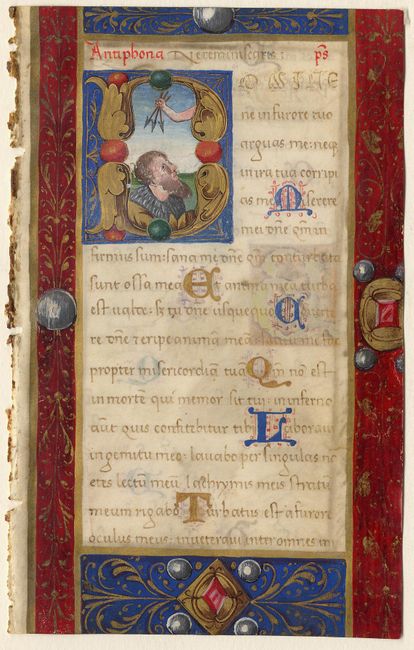 Antiphona Ne reminiscaris: ps
DOMINE
ne in furore tuo
arguas me: neq
in ira tua corripi
as me Miserere
mei dñe qm in
firmus sum: sana me dñe qm conturbata
sunt ossa mea Et anima mea turba
est valde: sz tu dñe usquequo
re dñe z eripe animam mea
propter misericordiã tuã Qm nõ est
in morte qui memor sit tui: in inferno
aut quis confitebitur tibi Laboravi
in gemitu meo: lavabo per singulas no
ctes lectũ meũ lachrymis meis stratũ
meum rigabo Turbatus est a furore
oculus meus: inveteravi inter omnes ini